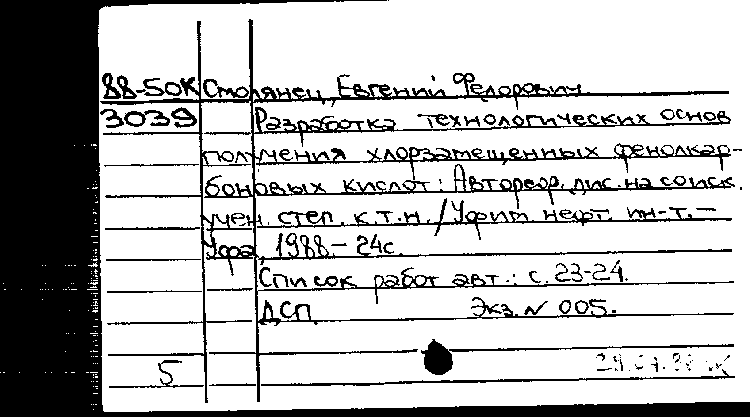 88-50К Смолянец, Евгений Федорович.
3039 Разработка технологических основ
получения хлорзамещенных фенолкар-
боновых кислот: Автореф. дис. на соиск.
учен. степ. к.т.н. / Уфим. нефт. ин-т. –
Уфа, 1988. – 24с.
Список работ авт.: с. 23-24.
ДСП. Экз. N 005.
5